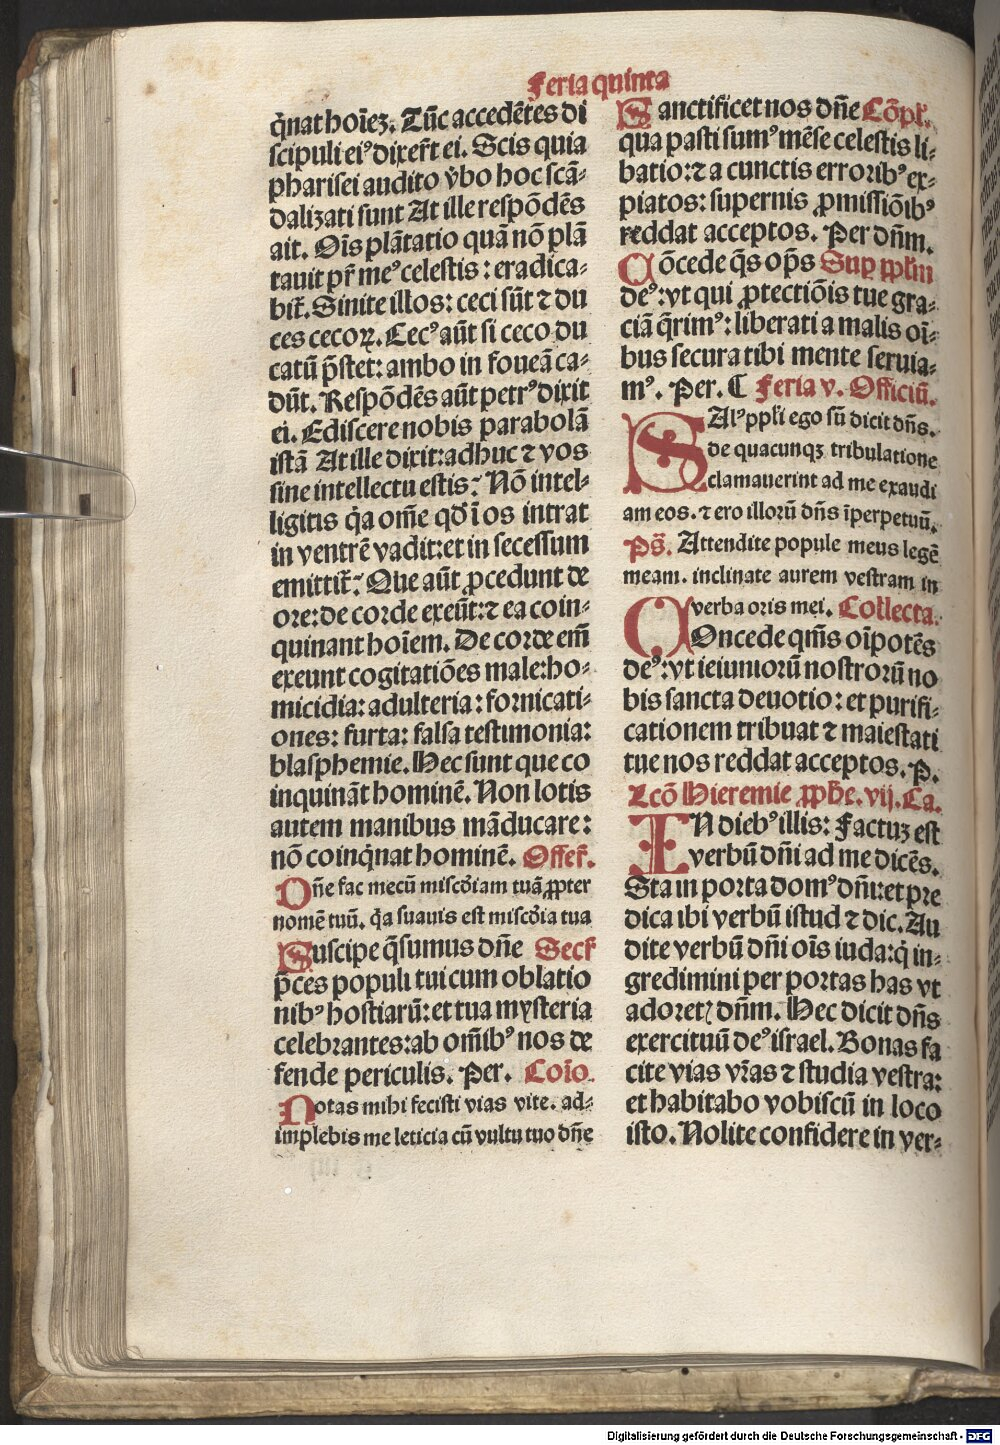 Feria quinta
q̄nat hoīeꝫ. Tūc accedētes di
scipuli ei⁹ dixer̄t ei. Scis quia
pharisei audito v̄bo hoc scā-
dalizati sunt At ille respōdēs
ait. Oīs plātatio quā nō plā
tauit pr̄ me⁹ celestis: eradica-
bit̄. Sinite illos: ceci sūt ⁊ du
ces cecoꝝ. Cec⁹ aūt si ceco du
catū p̄stet: ambo in foueā ca-
dūt. Respōdēs aūt petr⁹ dixit
ei. Edissere nobis parabolā
istā At ille dixit: adhuc ⁊ vos
sine intellectu estis? Nō intel-
ligitis q̄a om̄e qđ ī os intrat
in ventrē vadit: et in secessum
emittit̄? Que aūt ꝓcedunt de
ore: de corde exeūt: ⁊ ea coin-
quinant hoīem. De corde em̄
exeunt cogitatiōes male: ho-
micidia: adulteria: fornicati-
ones: furta: falsa testimonia:
blasphemie. Hec sunt que co
inquināt hominē. Non lotis
autem manibus māducare:
nō coinq̄nat hominē. Offer̄.
Dn̄e fac mecū misc̄diam tuā ꝓpter
nomē tuū. q̄a suauis est misc̄dia tua
Suscipe q̄sumus dn̄e Secr̄
p̄ces populi tui cum oblatio
nib⁹ hostiarū: et tua mysteria
celebrantes: ab om̄ib⁹ nos de
fende periculis. Per. Coīo.
Notas mihi fecisti vias vite. ad-
implebis me leticia cū vultu tuo dn̄e
Sanctificet nos dn̄e Cōpl̄.
qua pasti sum⁹ mēse celestis li-
batio: ⁊ a cunctis errorib⁹ ex-
piatos: supernis ꝓmissiōib⁹
reddat acceptos. Per dn̄m.
Cōcede q̄s op̄s Suꝑ ppl̄m
de⁹: vt qui ꝓtectiōis tue gra-
ciā q̄rim⁹: liberati a malis oī-
bus secura tibi mente seruia-
m⁹. Per. ⸿ Feria v. Officiū.
SAl⁹ ppl̄i ego sū dicit dn̄s.
de quacunqꝫ tribulatione
clamauerint ad me exaudi
am eos. ⁊ ero illorū dn̄s īperpetuū.
Ps̄. Attendite popule meus legē
meam. inclinate aurem vestram in
verba oris mei. Collecta.
COncede qm̄s oīpotēs
de⁹: vt ieiuniorū nostrorū no
bis sancta deuotio: et purifi-
cationem tribuat ⁊ maiestati
tue nos reddat acceptos. P.
Lcō Hieremie ꝓph̄e. vij. Ca.
IN dieb⁹ illis: Factuꝫ est
verbū dn̄i ad me dicēs.
Sta in porta dom⁹ dn̄i: et pre
dica ibi verbū istud ⁊ dic. Au
dite verbū dn̄i oīs iuda: q̄ in-
gredimini per portas has vt
adoretꝭ dn̄m. Hec dicit dn̄s
exercituū de⁹ israel. Bonas fa
cite vias vr̄as ⁊ studia vestra:
et habitabo vobiscū in loco
isto. Nolite confidere in ver-
Digitalisierung gefördert durch die Deutsche Forschungsgemeinschaft - DFG